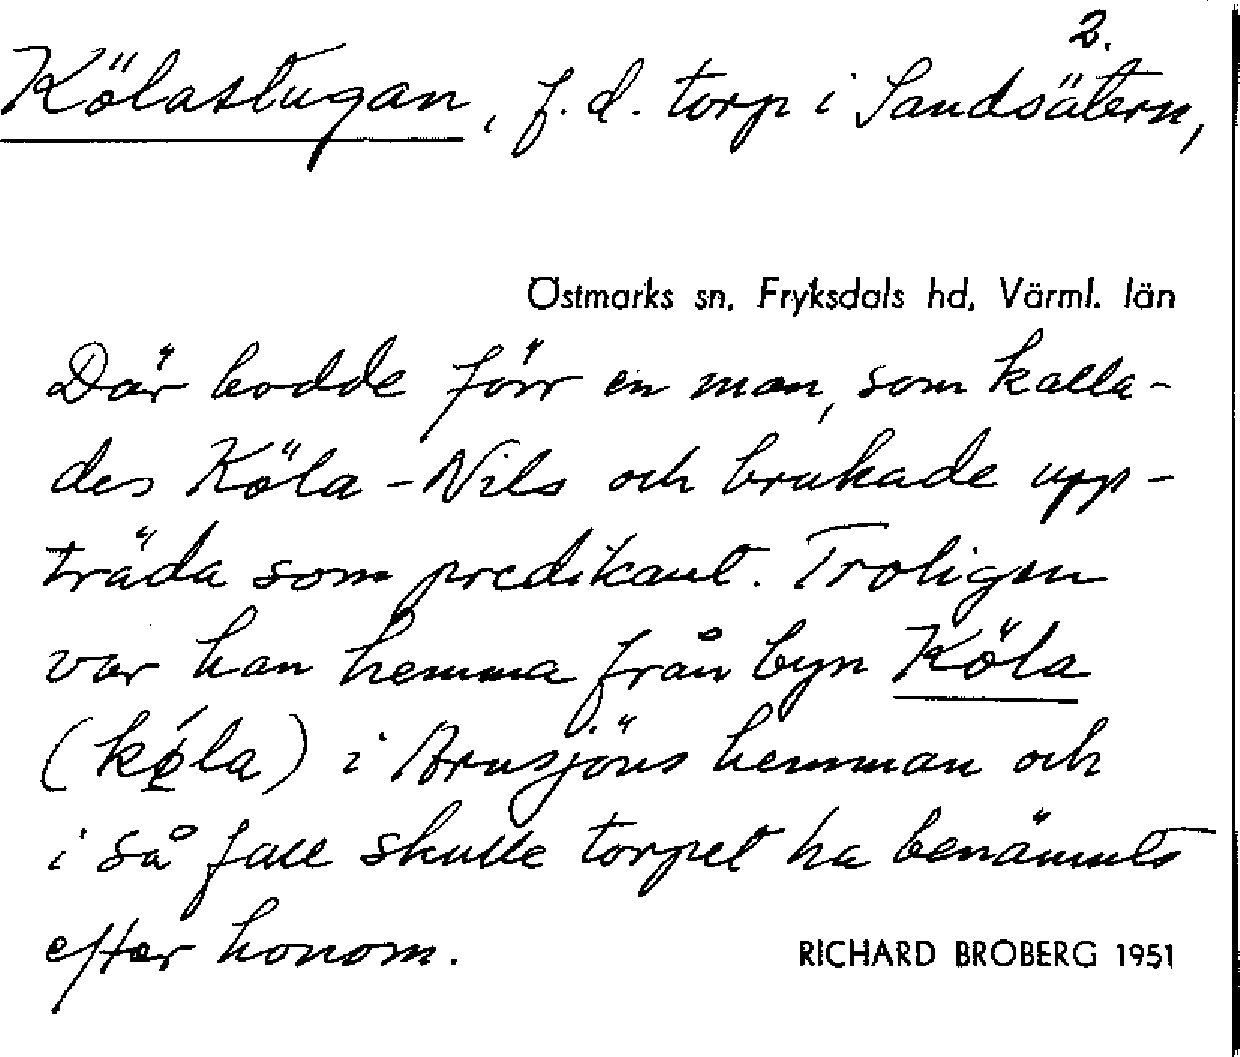 2.
Kölastugan, f.d. torp i Sandsätern,
Östmarks sn, Fryksdals hd, Värml. län
Där bodde förr en man, som kalla-
des Köla-Nils och brukade upp-
träda som predikant. Troligen
var han hemma från byn Köla
i Arnsjöns hemman och
i så fall skulle torpet ha benämnts
efter honom.
RICHARD BROBERG 1951